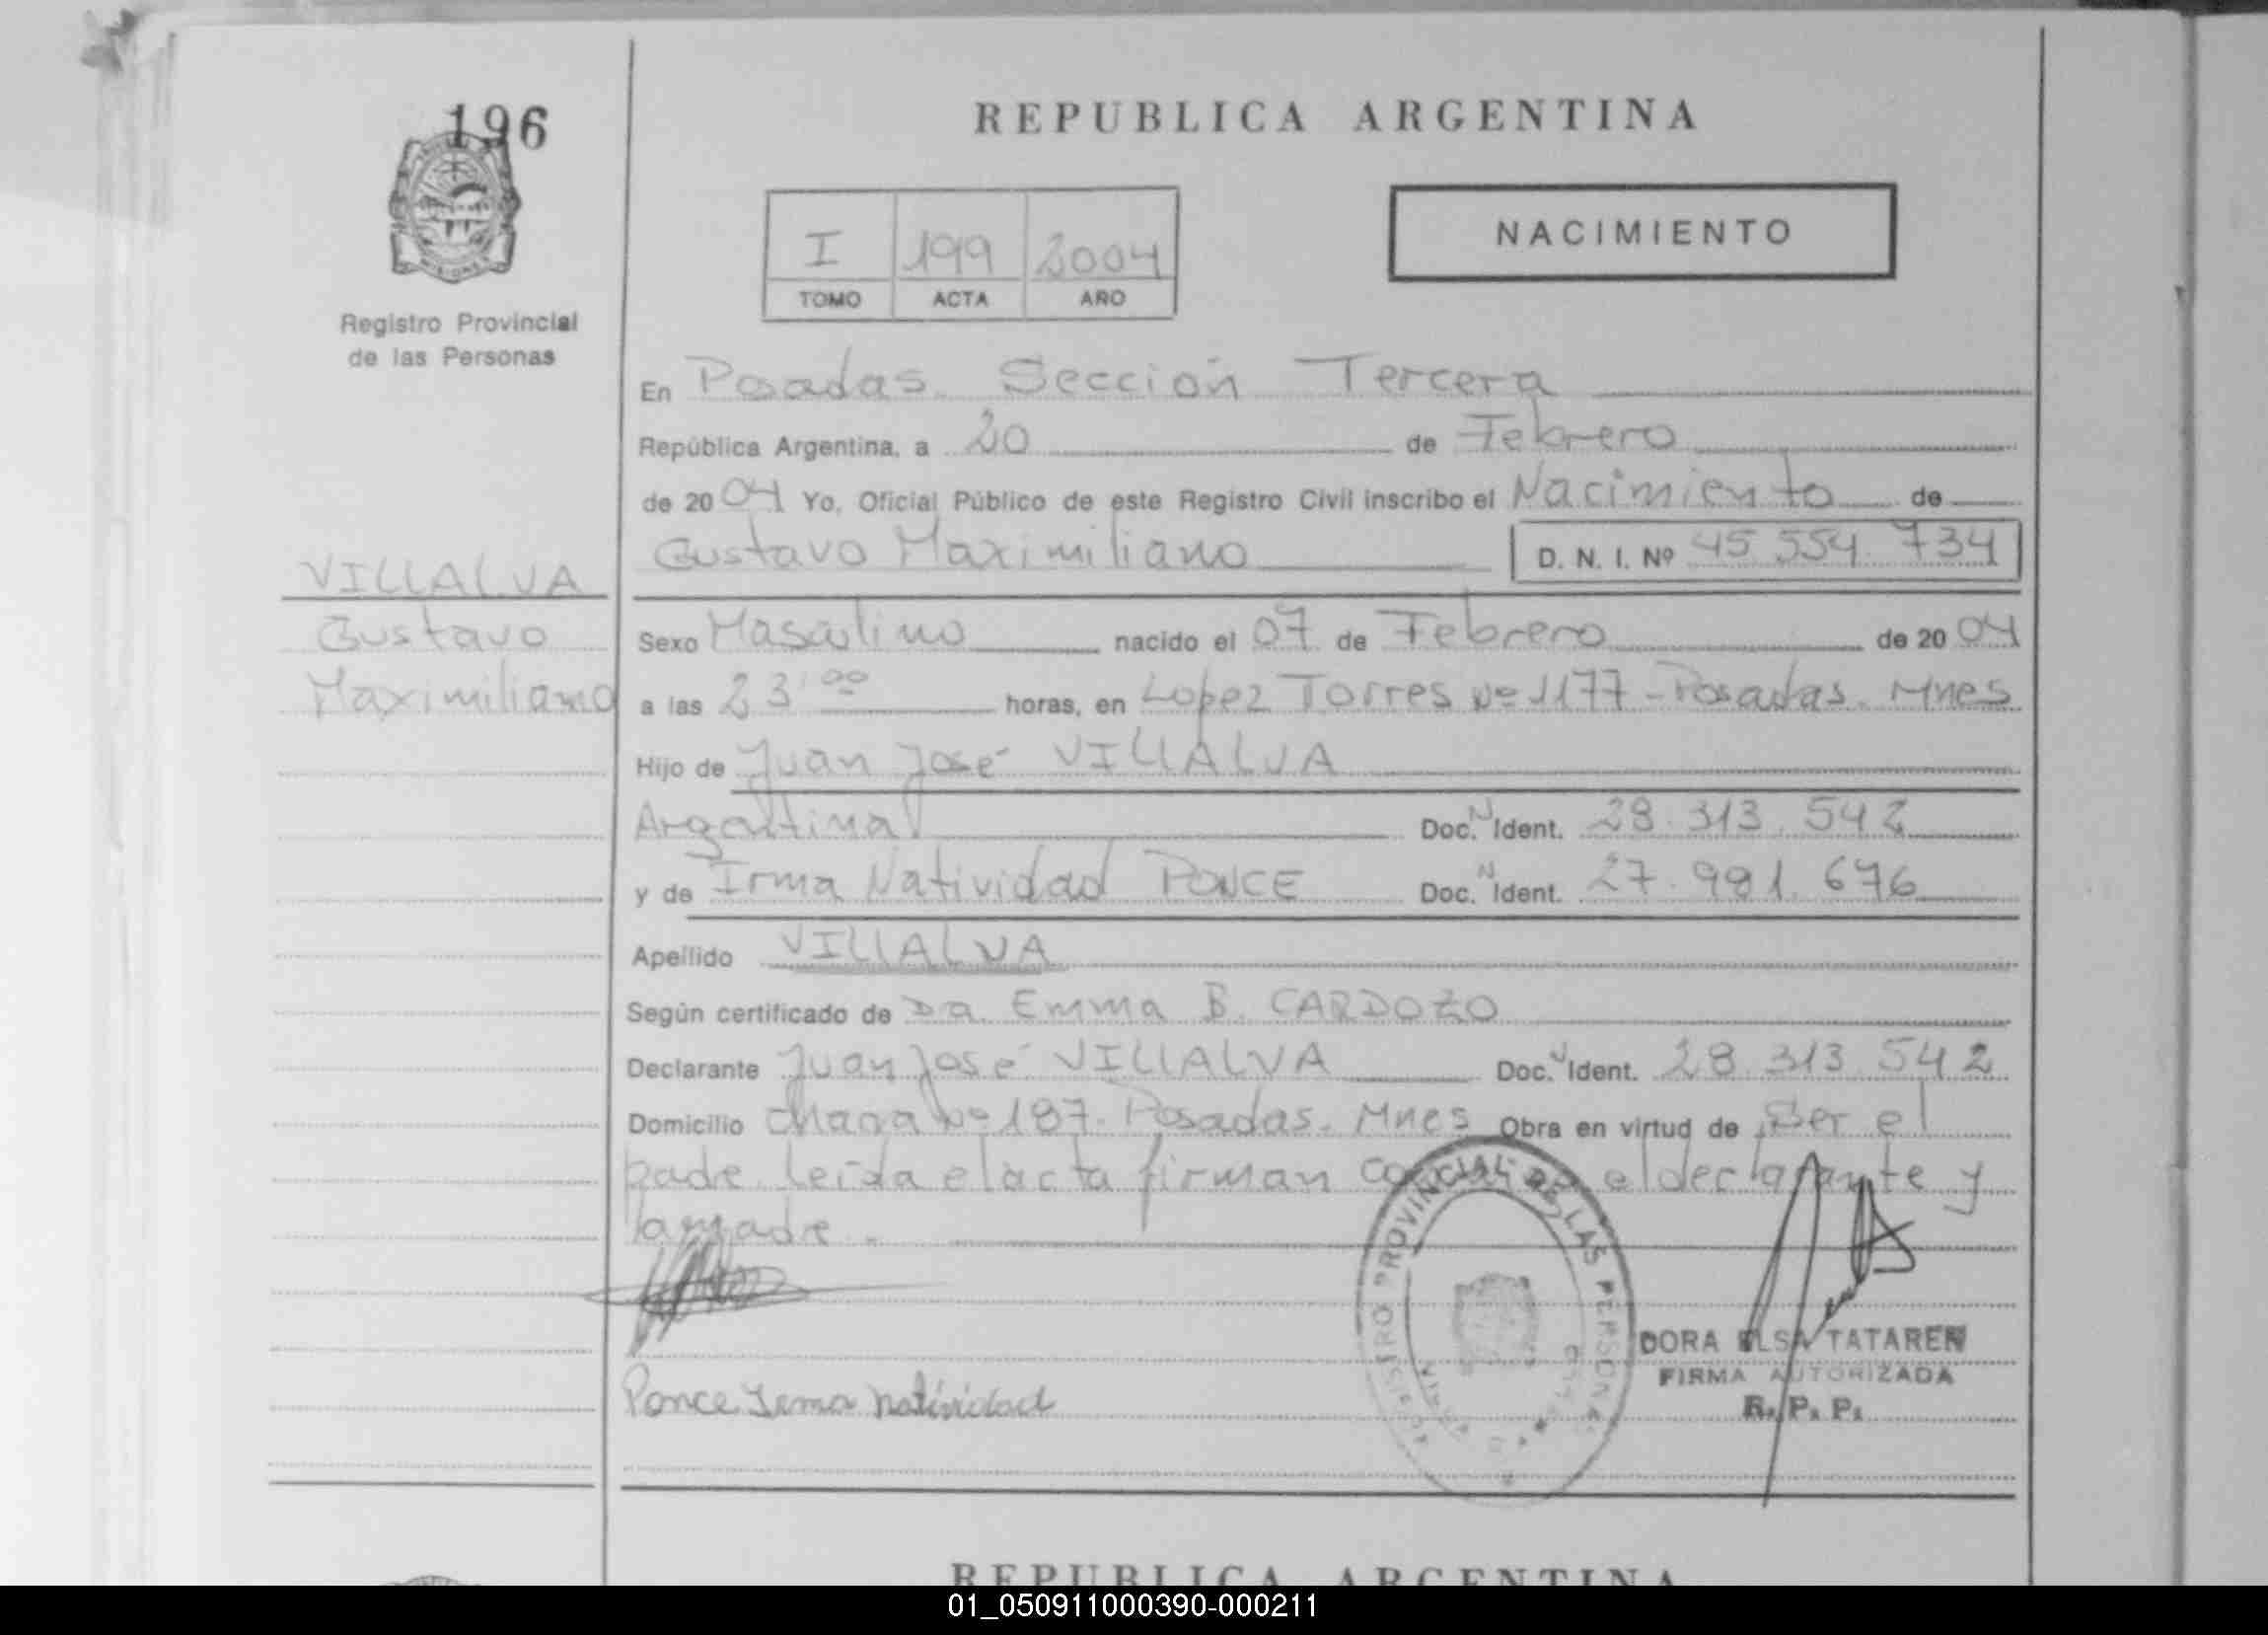 196
REPUBLICA ARGENTINA
MISIONES
Registro Provincial
de las Personas
I 199 2004
TOMO ACTA AÑO
NACIMIENTO
En Posadas. Sección Tercera
República Argentina, a 20 de Febrero
de 2004 Yo, Oficial Público de este Registro Civil inscribo el Nacimiento de
Gustavo Maximiliano D. N. I. Nº 45 554. 734
VILLALVA
Gustavo
Maximiliano
Sexo Masculino nacido el 07 de Febrero de 2004
a las 23'00 horas, en Lopez Torres Nº 1177 - Posadas. Mnes
Hijo de Juan José VILLALVA
Argentina Doc. N Ident. 28. 313. 542
y de Irma Natividad PONCE Doc. N Ident. 27. 991. 676
Apellido VILLALVA
Según certificado de Dra. Emma B. CARDOZO
Declarante Juan José VILLALVA Doc. N Ident. 28. 313. 542
Domicilio Nº 187. Posadas. Mnes Obra en virtud de Ser el
padre. leida el acta firman el declarante y
la madre.
REGISTRO PROVINCIAL DE LAS PERSONAS
DORA ELSA TATAREN
FIRMA AUTORIZADA
R. P. P.
Ponce Irma natividad
REPUBLICA ARGENTINA
01_050911000390-000211